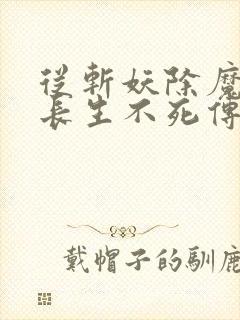 從斬妖除魔
長生不死傳
戴帽子的馴鹿